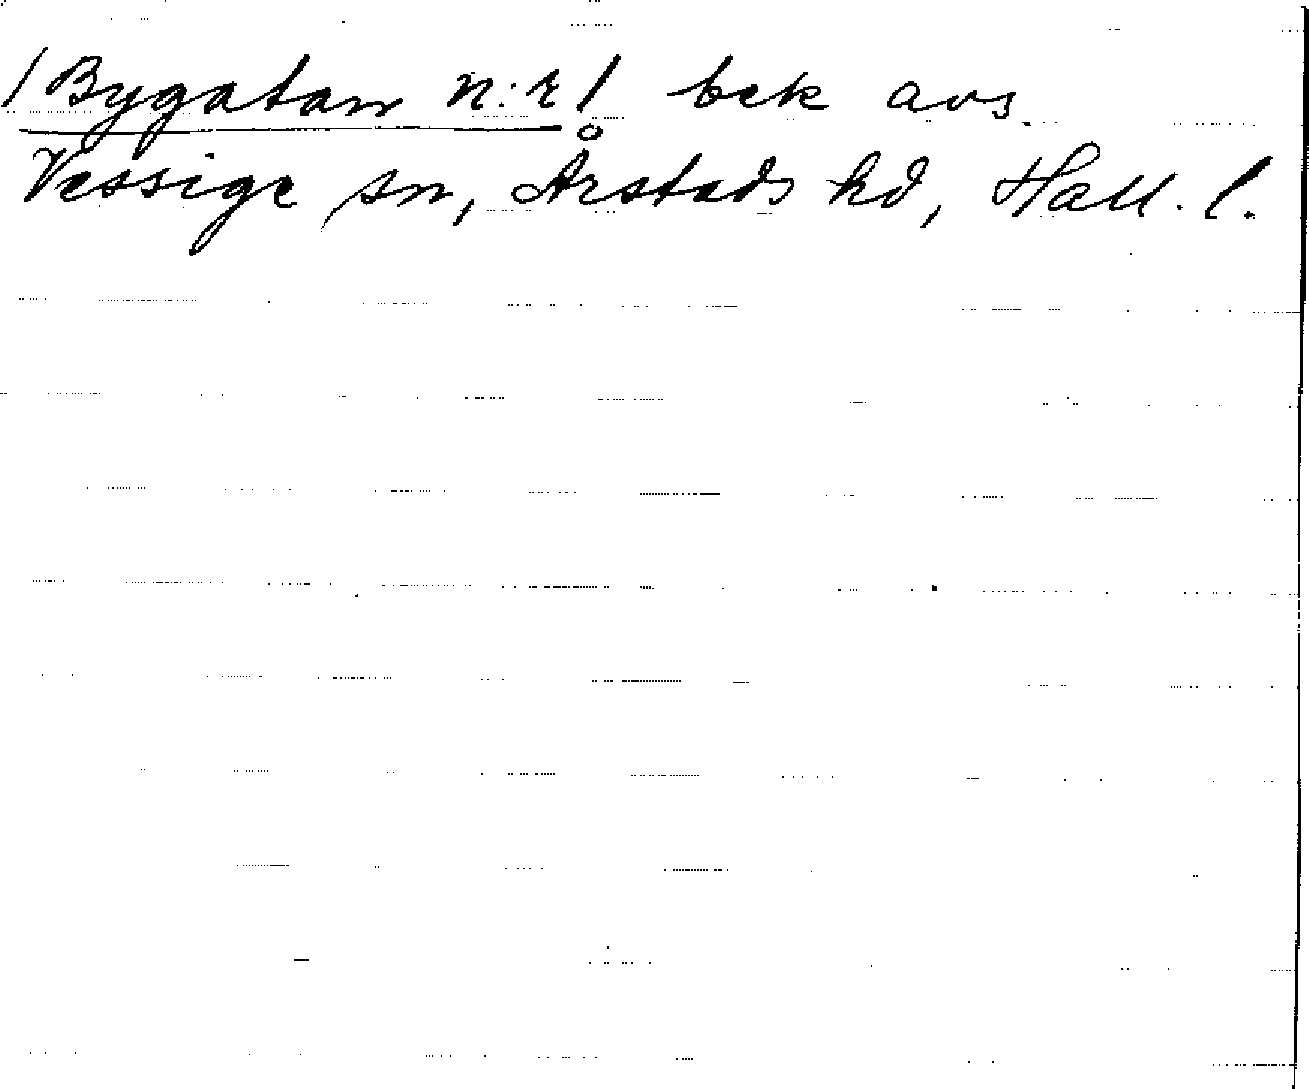 /Bygatan n:r/ bek avs.
Vessige sn, Årstads hd, Hall. l.